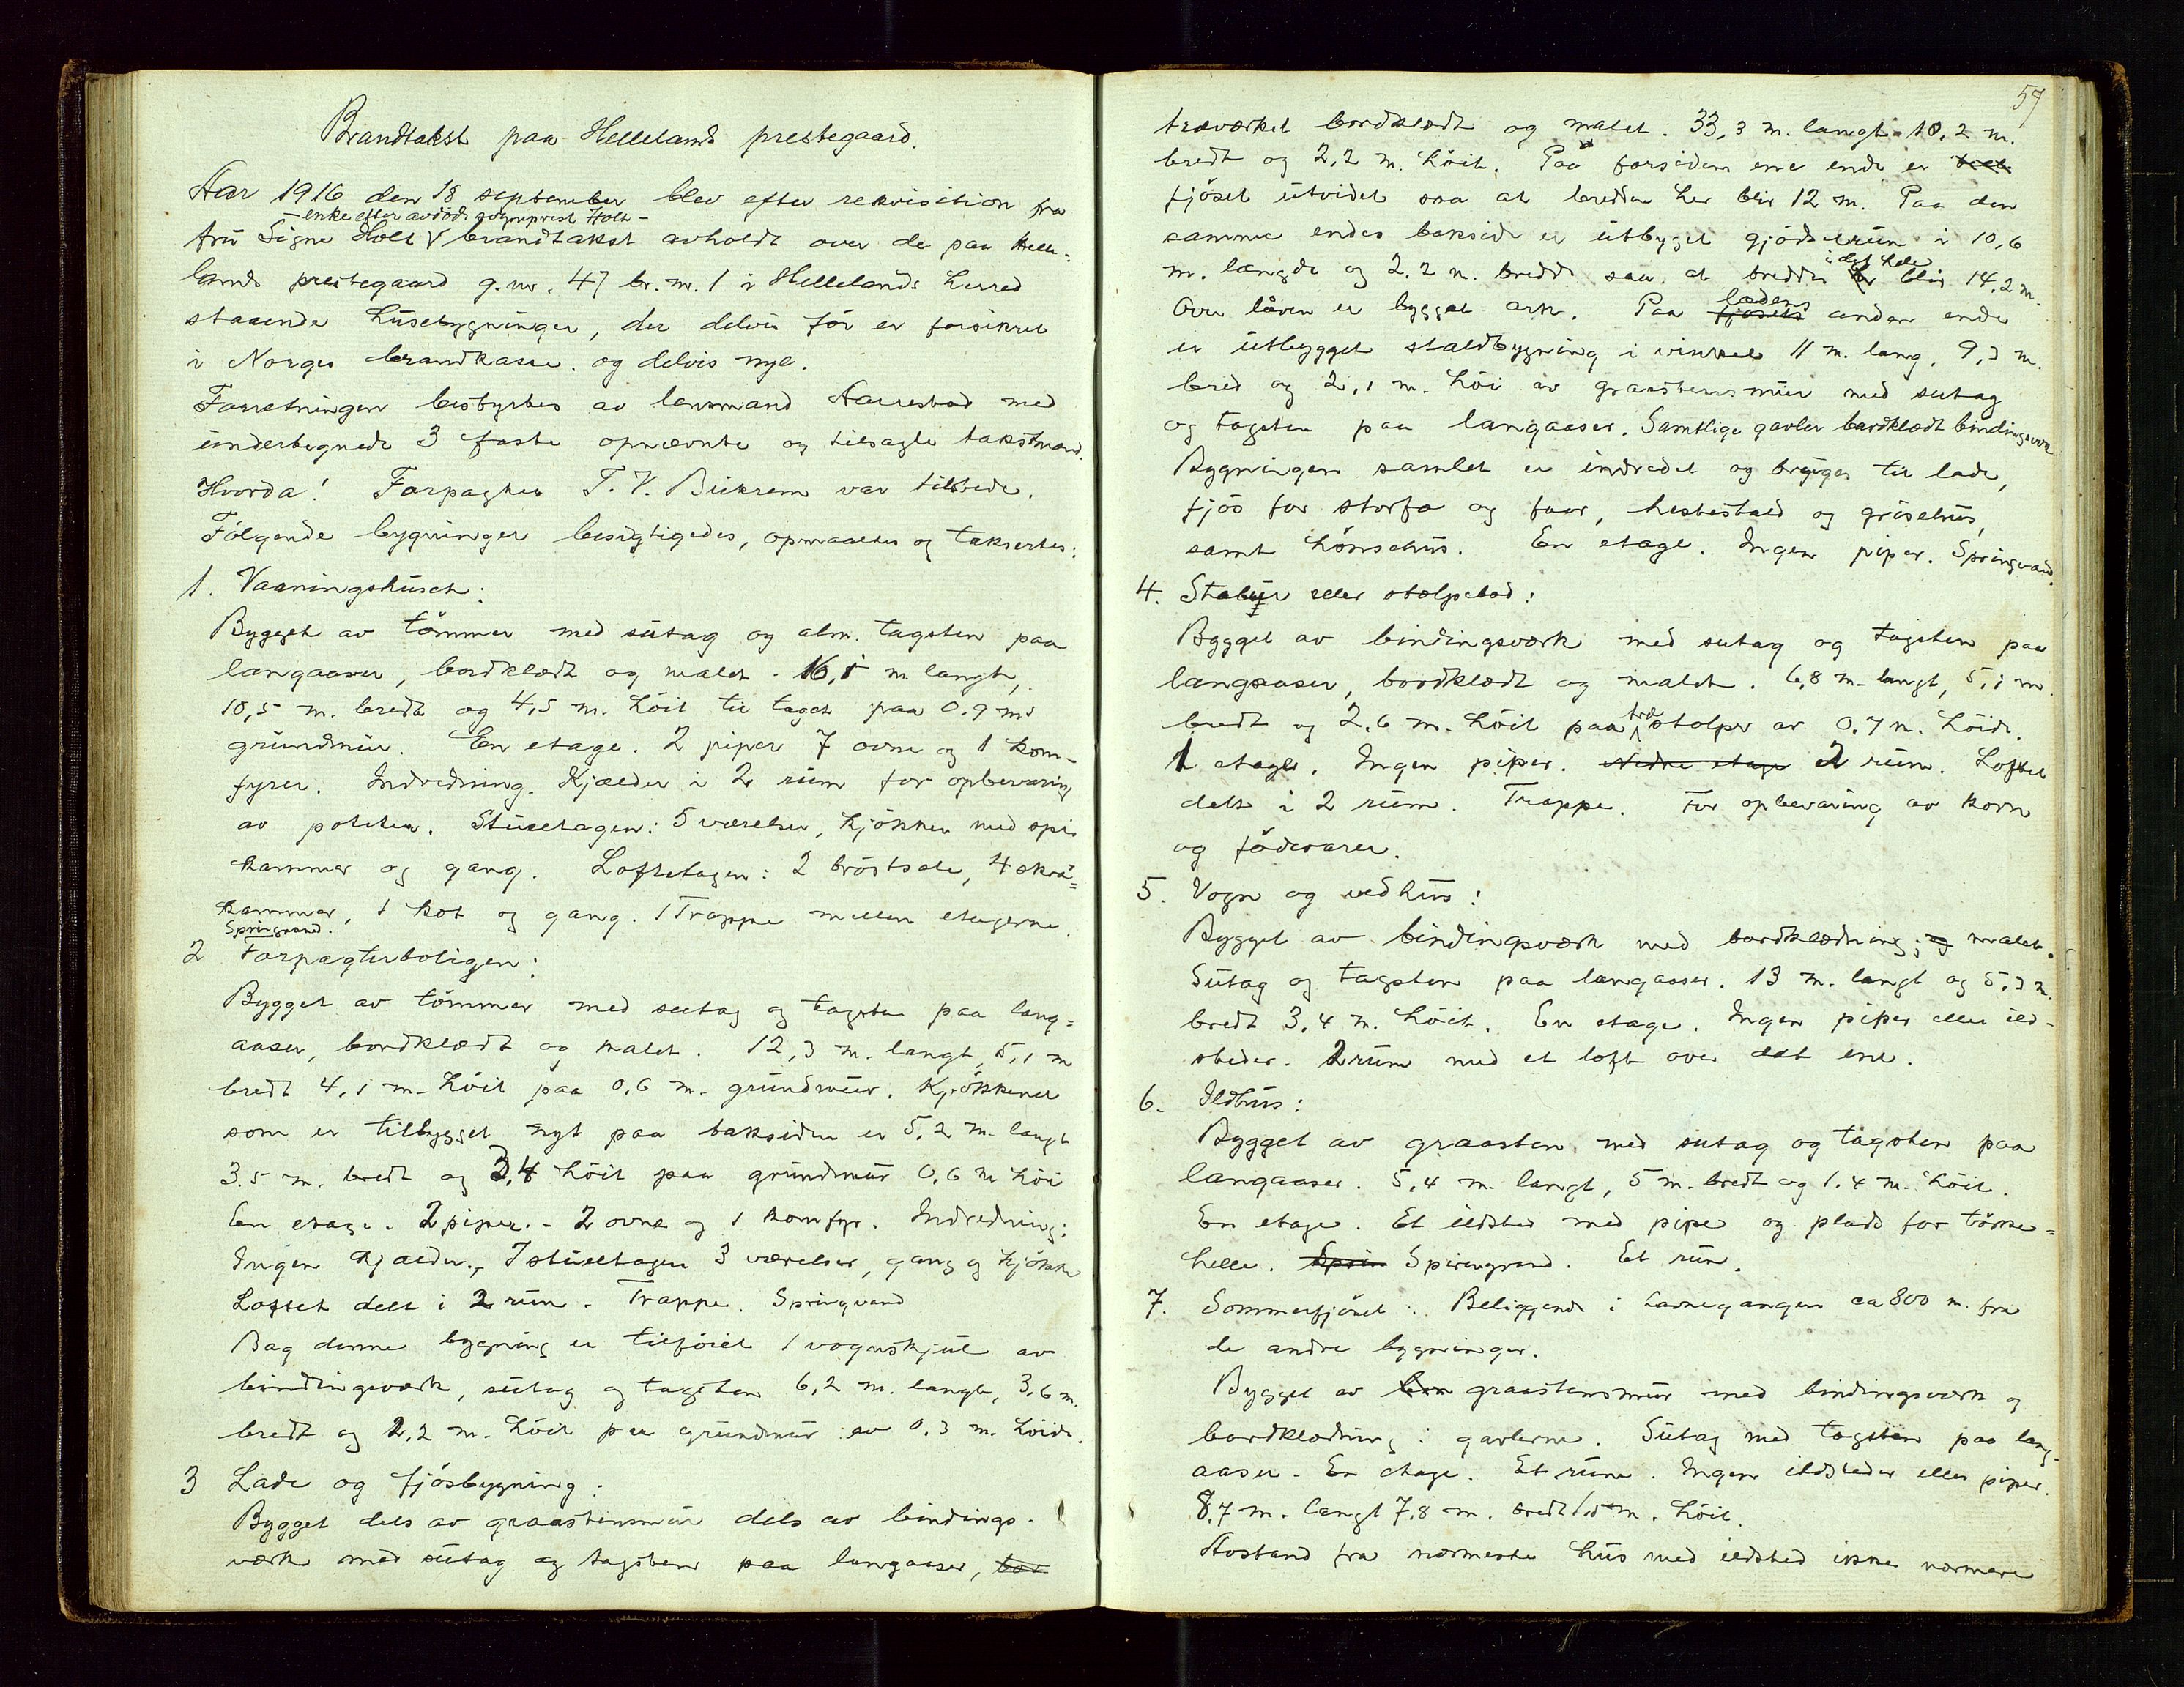 Brandtakst paa Helleland prestegaard.
Aar 1916 den 18 september blev efter rekvisition fra
- enke efter avdöde sogneprest Holt -
fru Signe Holt brandtakst avholdt over de paa Helle=
lands prestegaard g.nr. 47 br.nr. 1 i Hellelands herred
staaende husebygninger, der delvis för er forsikret
i Norges brandkasse og delvis nye.
Forretningen bestyrtes av lensmand Aarrestad med
undertegnede 3 faste opnævnte og tilsagte takstmænd.
Hvorda! Forpagter T. V. Birkrem var tilstede.
Fölgende bygninger besigtigedes, opmaaltes og taksertes:
1. Vaaningshuset:
Bygget av tömmer med sutag og alm. tagsten paa
langaaser, bordklædt og malet. 16,5 m langt,
10,5 m. bredt og 4,5 m. höit til taget paa 0.9 ms
grundmur. En etage. 2 piper 7 ovne og 1 kom-
fyrer. Indredning. Kjælder i 2 rum for opbevaring
av poteter. Stueetagen: 5 værelser, kjökken med spis
kammer og gang. Loftetagen: 2 bröstsale, 4 skraa=
kammer, 1 kot og gang. 1 Trappe mellem etagerne.
Springvand.
2 Forpagterboligen:
Bygget av tömmer med sutag og tagsten paa lang=
aaser, bordklædt og malet. 12,3 m. langt, 5,1 m
bredt 4,1 m. höit paa 0,6 m. grundmur. Kjökkenet
som er tilbygget nyt paa baksiden er 5,2 m. langt
3.5 m. bredt og 3,4 höit paa grundmur 0,6 m höi
En etage. 2 piper. - 2 ovne og 1 komfyr. Indredning:
Ingen kjælder., I stueetagen 3 værelser, gang og kjökken
Loftet delt i 2 rum. Trappe. Springvand
Bag denne bygning er tilföiet 1 vognskjul av
bindingsverk, sutag og tagsten 6,2 m. langt, 3,6 m.
bredt og 2,2 m. höit paa grundmur av 0.3 m. höide.
3 Lade og fjösbygning:
Bygget dels av graastensmur dels av bindings-
værk med sutag og tagsten paa langaaser,
57
træværket bordklædt og malet. 33,3 m. langt 10,2 m.
bredt og 2,2 m. höit. Paa forsidens ene ende er
fjöset utvidet saa at bredden her blir 12 m. Paa den
samme endes bakside er utbygget gjödselrum i 10,6
i det hele
m. længde og 2.2 m. bredde saa at bredden blir 14,2 m.
ladens
Over låven er bygget ark. Paa fjösets anden ende
er utbygget staldbygning i vinkel 11 m. lang, 9,3 m.
bred og 2,1 m. höi av graastensmur med sutag
og tagsten paa langaaser. Samtlige gavler bordklædt bindingsverk
Bygningen samlet er indredet og bruges til lade,
fjös for storfæ og faar, hestestald og grisehus,
samt hönsehus. En etage. Ingen piper. Springvand.
4. Stabur eller stolpebod:
Bygget av bindingsværk med sutag og tagsten paa
langaaser, bordklædt og malet. 6,8 m. langt, 5,1 m.
træ
bredt og 2,6 m. höit paa stolper av 0.7 m. höide.
1 etager. Ingen piper. Nedre etage 2 rum. Loftet
delt i 2 rum. Trappe. For opbevaring av korn
og födevarer.
5. Vogn og vedhus:
Bygget av bindingsværk med bordklædning; og malet.
Sutag og tagsten paa langaaser. 13 m. langt og 5,3 m.
bredt 3,4 m. höit. En etage. Ingen piper eller ild-
steder. 2 rum med et loft over det ene.
6. Ildhus:
Bygget av graasten med sutag og tagsten paa
langaaser. 5,4 m. langt, 5 m. bredt og 1.4 m. höit.
En etage. Et ildsted med pipe og plads for törke=
helle. Sprin Springvand. Et rum.
7. Sommerfjöset: Beliggende i havnegangen ca 800 m. fra
de andre bygninger.
Bygget av graastensmur med bindingsværk og
bordklædning i gavlerne. Sutag med tagsten paa lang-
aaser. En etage. Et rum. Ingen ildsteder eller piper.
8,7 m. langt 7,8 m. bredt 1,5 m. höit.
Avstand fra nærmeste hus med ildsted ikke nærmere